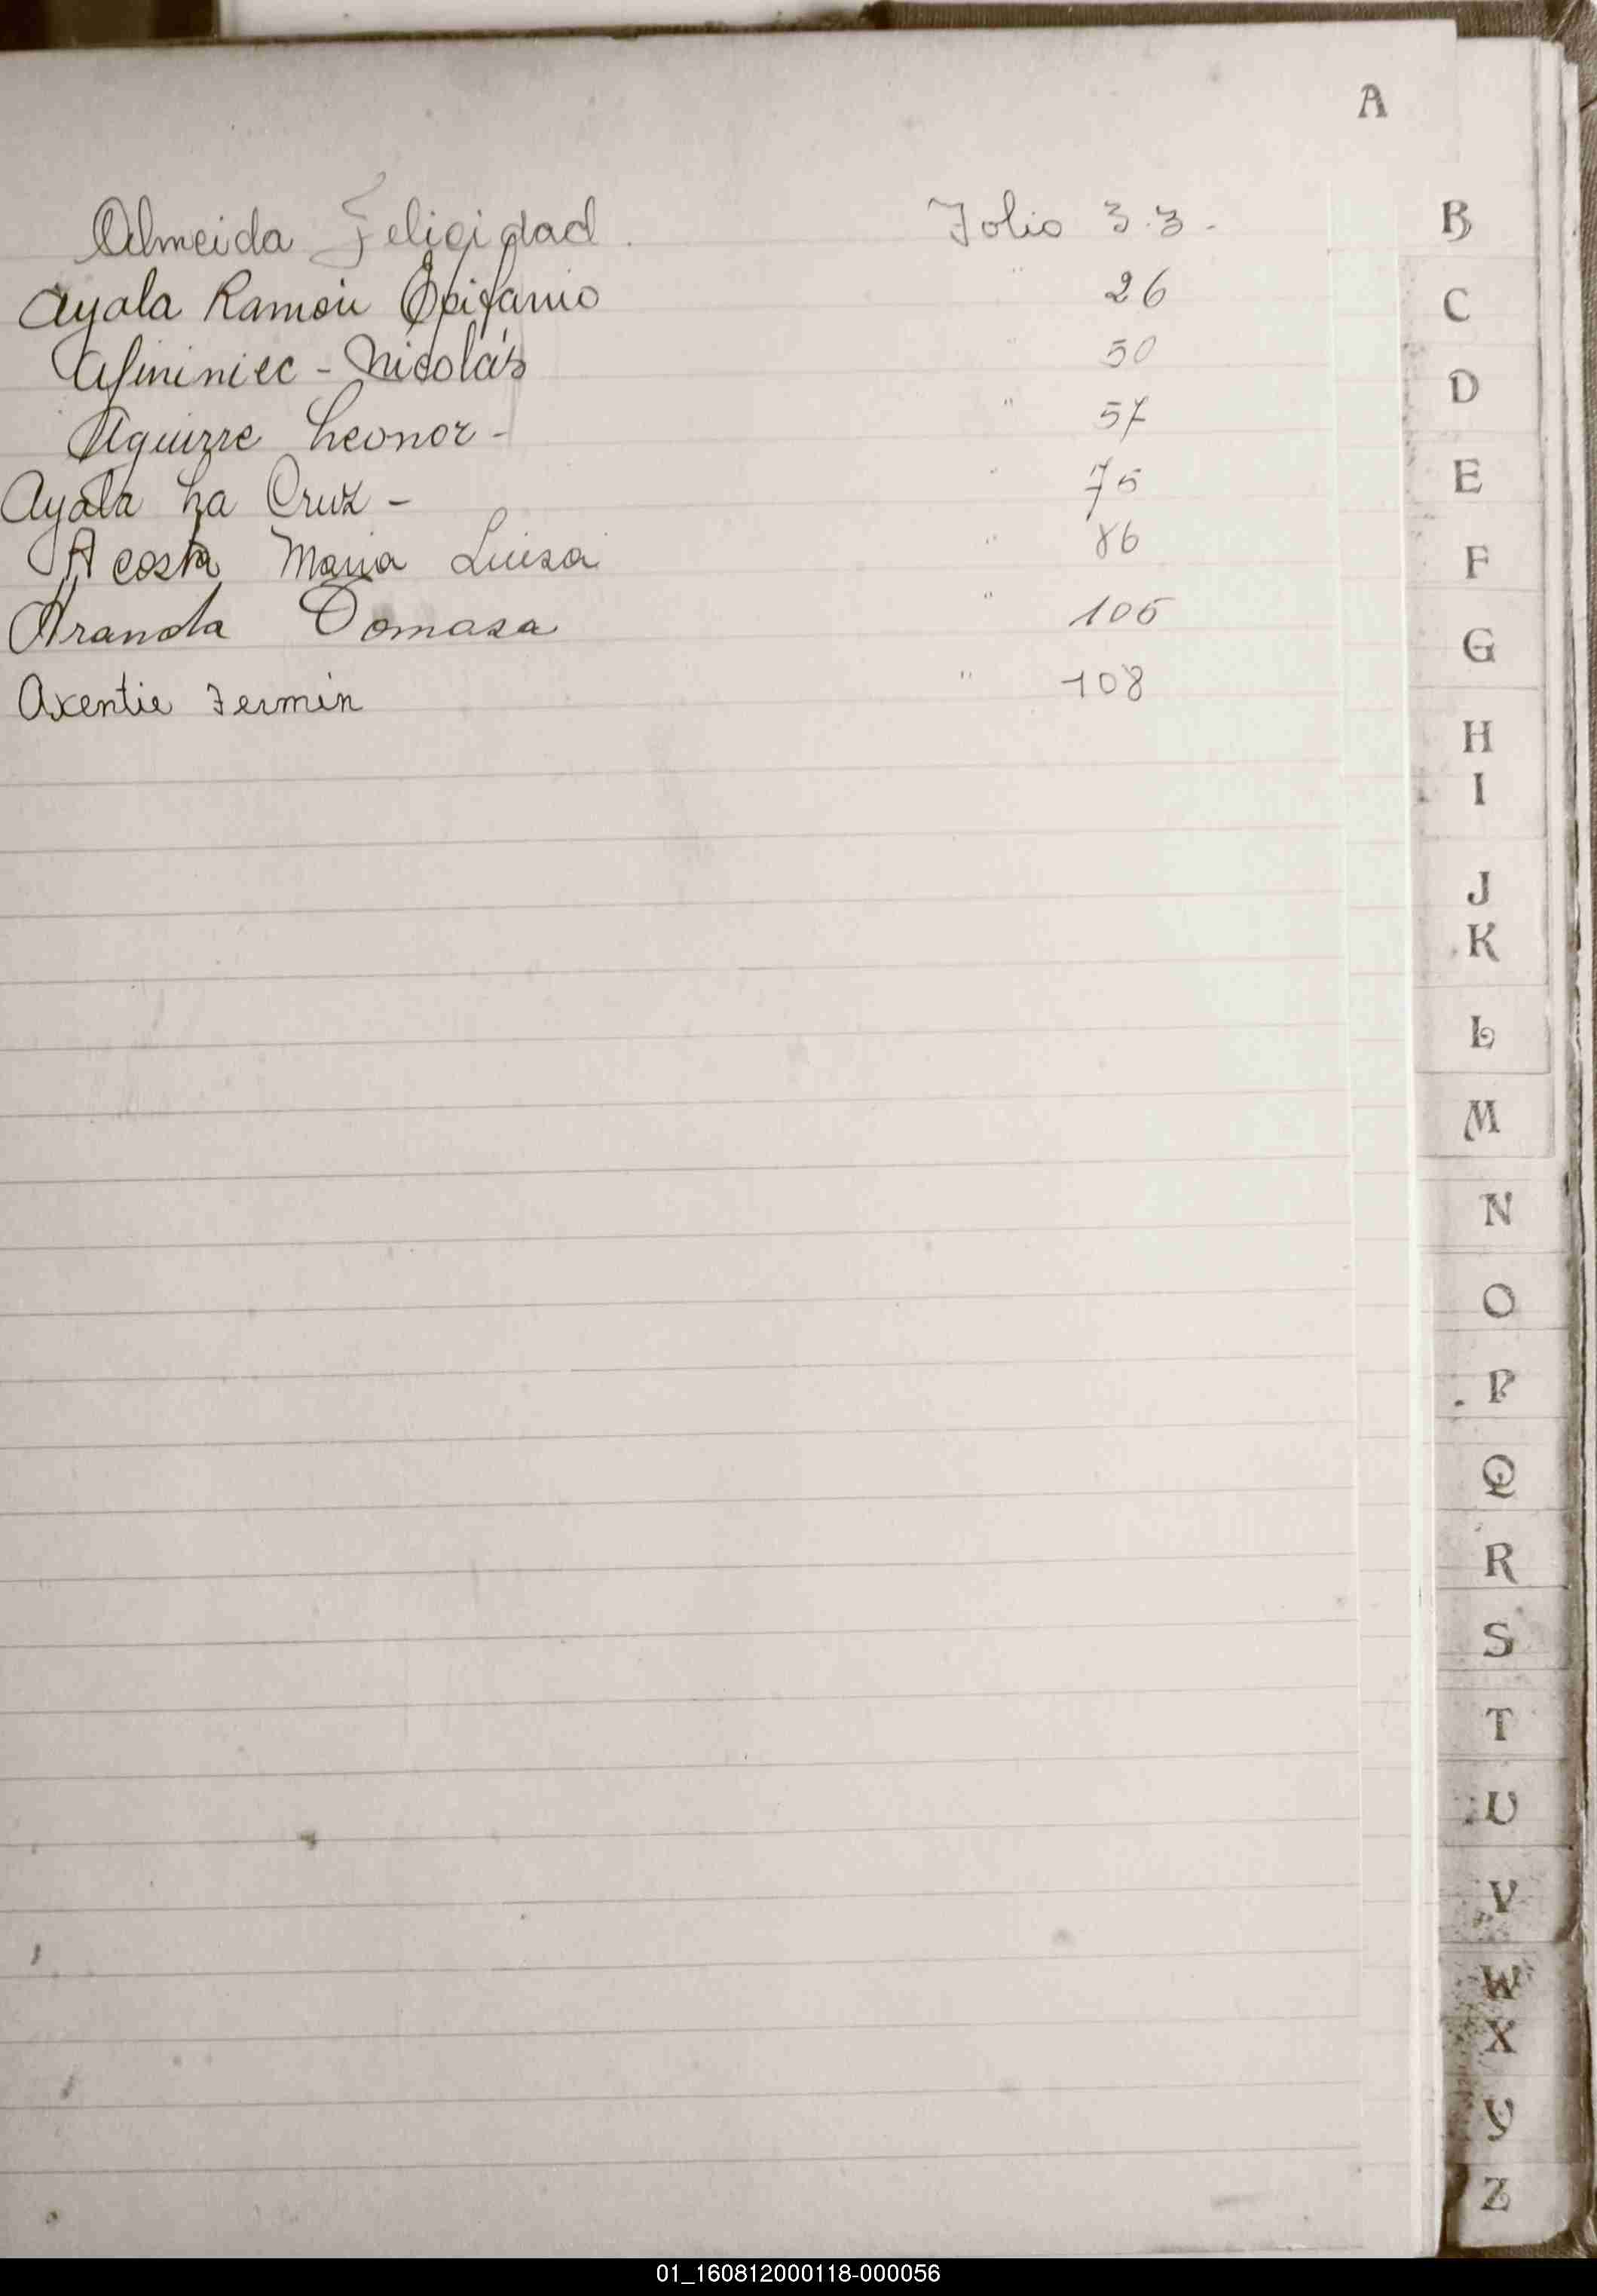 A
Almeida Felicidad. Folio 33.-
Ayala Ramón Epifanio " 26
Nicolás " 50
Aguirre Leonor - " 57
Ayala La Cruz - " 75
Acosta Maria Luisa " 86
Aranda Tomasa " 105
Axentie Fermin " 108
B
C
D
E
F
G
H
I
J
K
L
M
N
O
P
Q
R
S
T
U
V
W
X
Y
Z
01_160812000118-000056